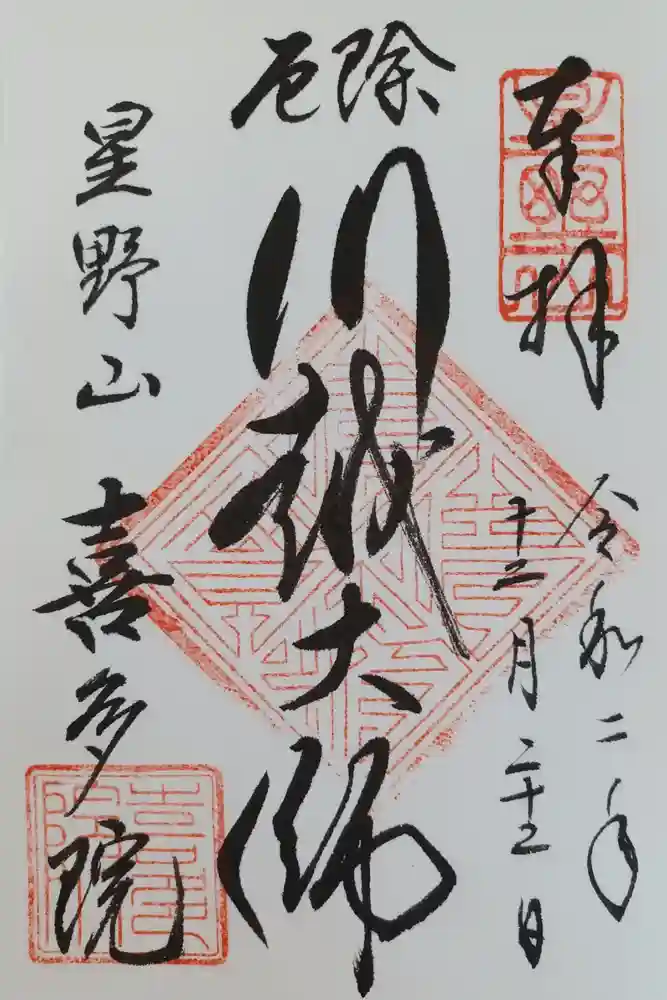 奉拝
令和二年
十二月二十二日
厄除
川越大師
星野山
喜多院